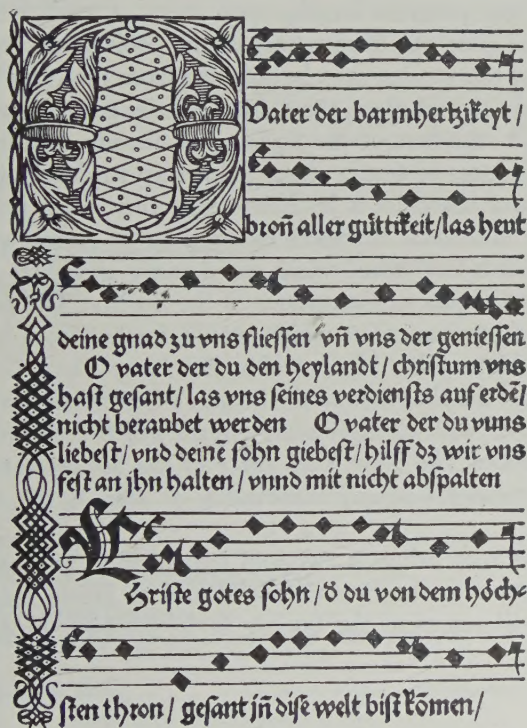 O Vater der barmhertzikeyt /
bron̄ aller güttikeit/las heut
deine gnad zu vns fliessen vn̄ vns der geniessen
O vater der du den heylandt / christum vns
hast gesant/las vns seines verdiensts auf erdē/
nicht beraubet werden O vater der du vnns
liebest/vnd deinē sohn giebest/hilff dz wir vns
fest an jhn halten / vnnd mit nicht abspalten
Christe gotes sohn/ð du von dem höch-
sten thron / gesant jn̄ dise welt bist kōmen/